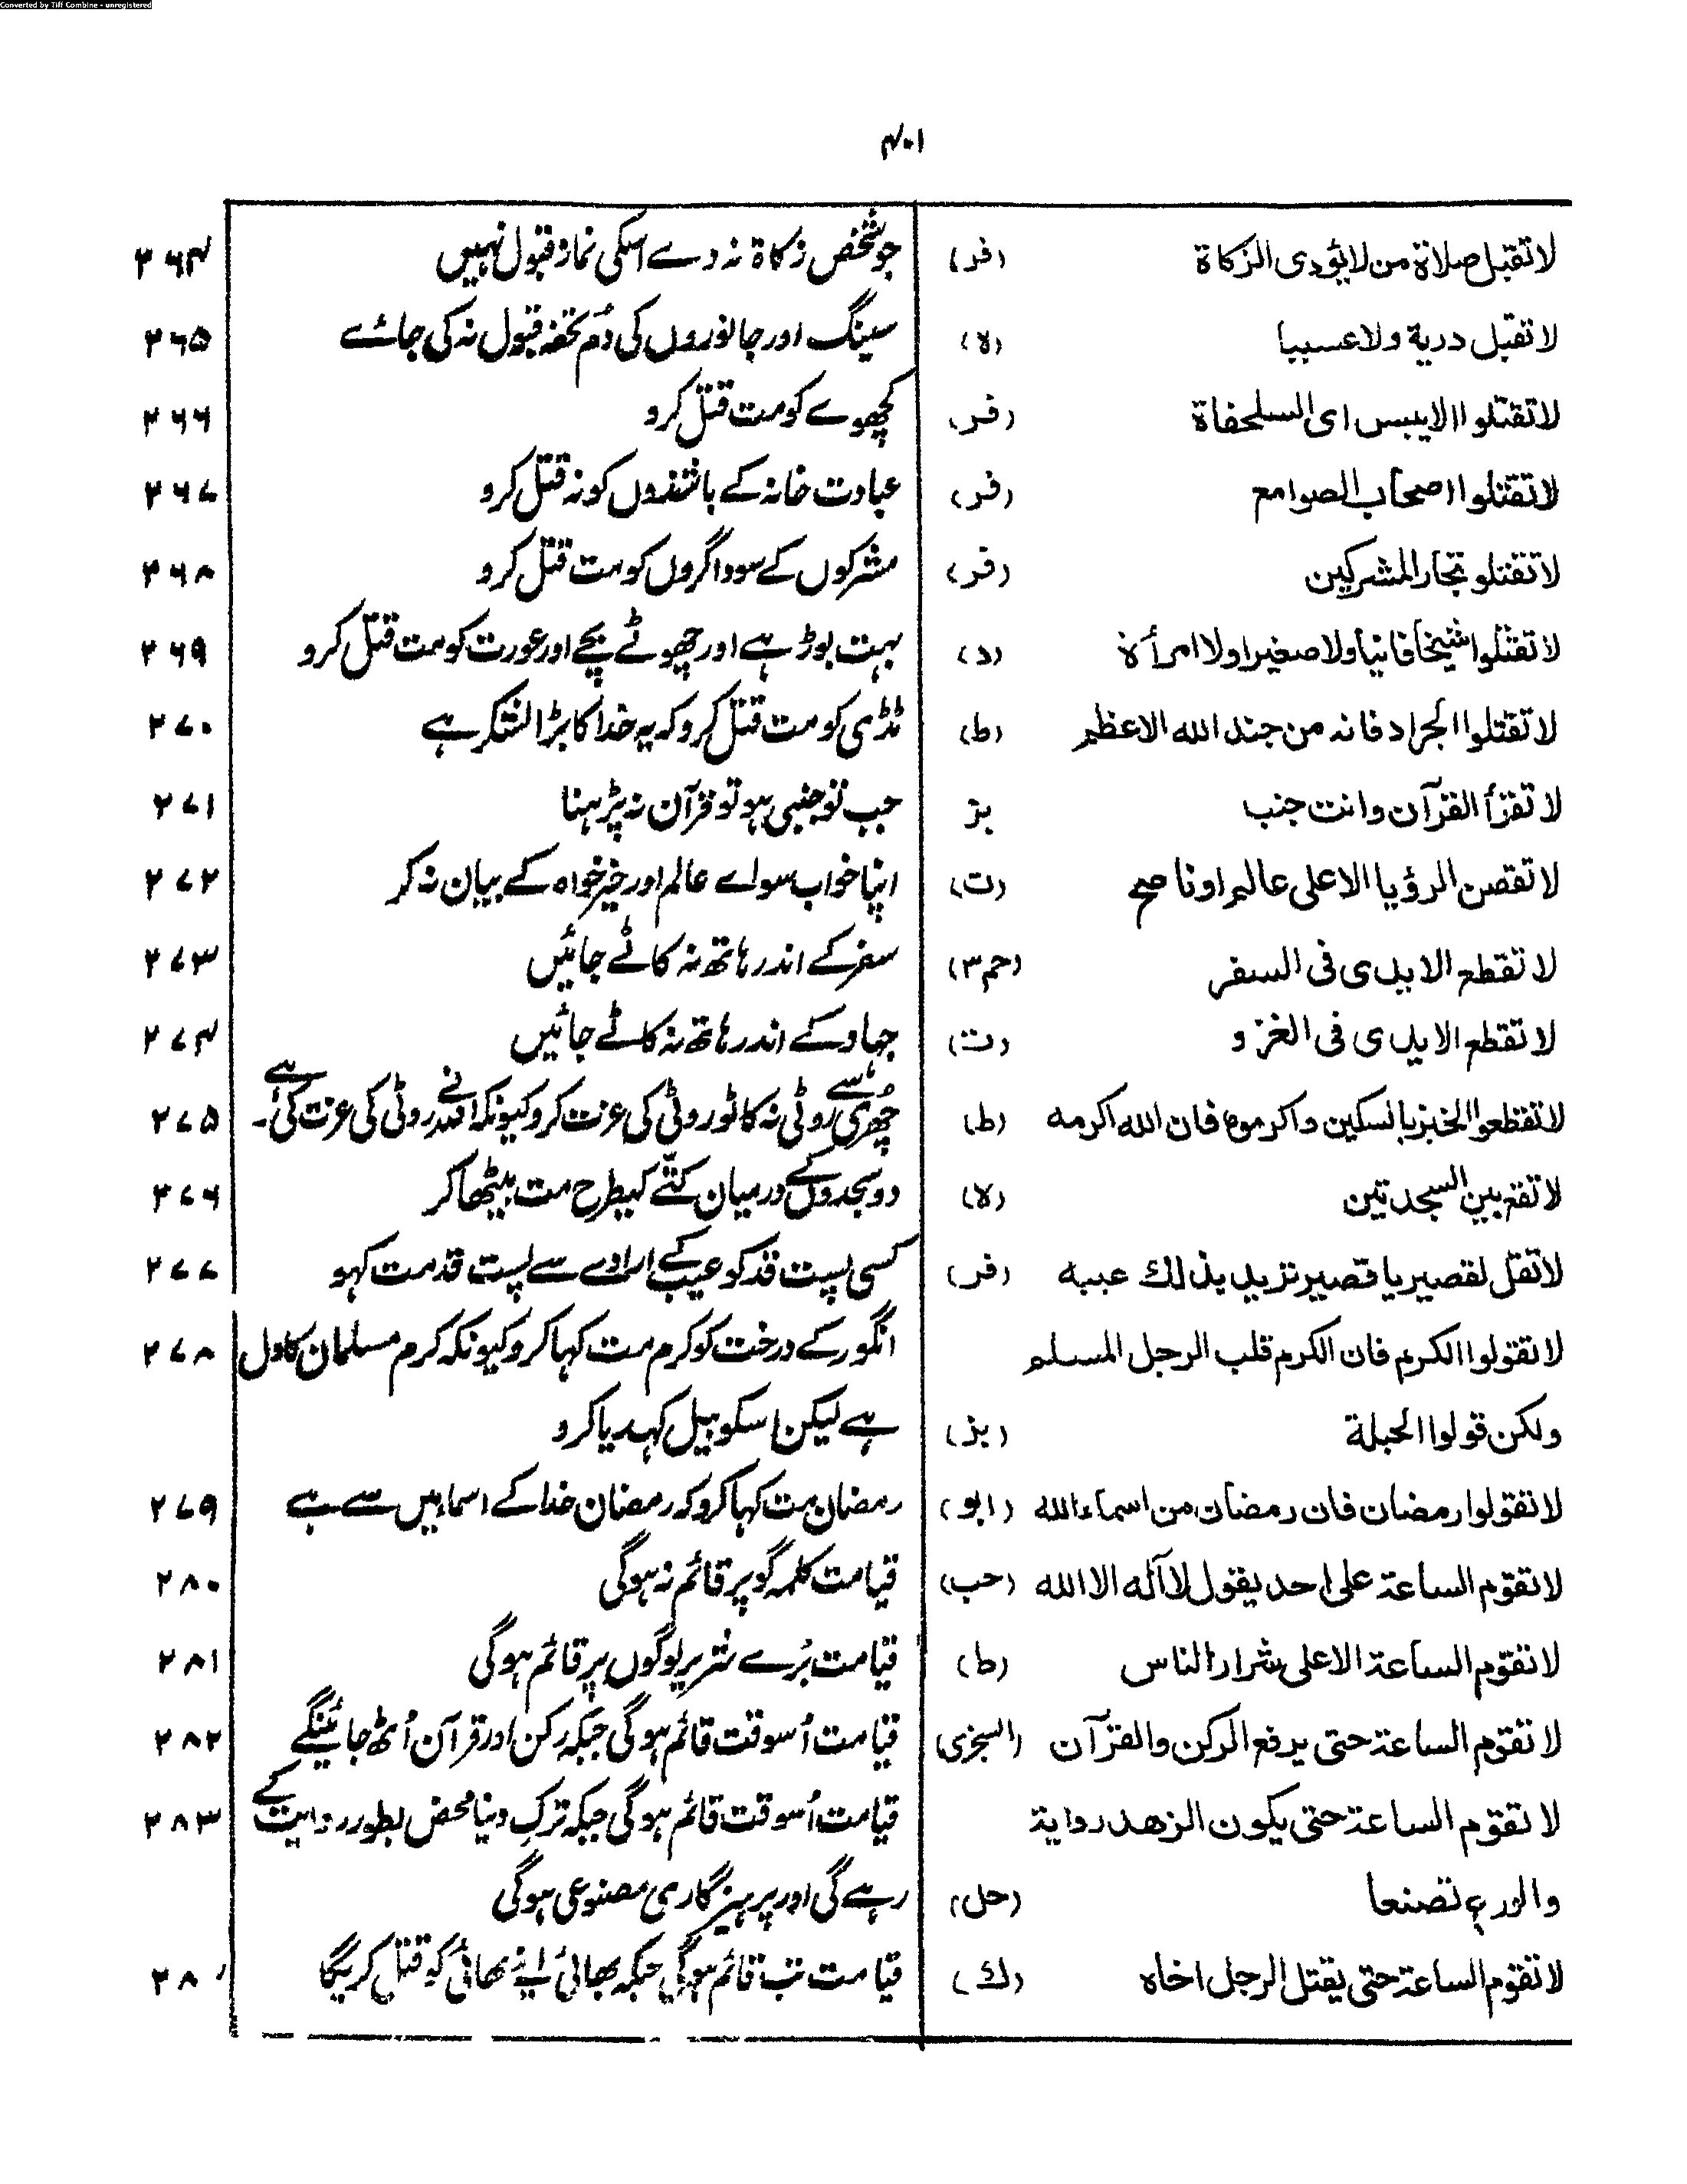 Converted by Tiff Combine - unregistered
۴۰۱
لا تقبل صلاة من لا یؤدی الزکاة (فر) جو شخص زکاة نہ دے اسکی نماز قبول نہیں ۲۶۴
لا تقبل دریة ولا عسیبا (لا) سینگ اور جانوروں کی دُم تحفہ قبول نہ کی جائے ۲۶۵
لا تقتلوا الایبس ای السلحفاة (فر) کچھوے کو مت قتل کرو ۲۶۶
لا تقتلوا اصحاب الصوامع (فر) عبادت خانہ کے باشندوں کو نہ قتل کرو ۲۶۷
لا تقتلو تجار المشرکین (فر) مشرکوں کے سوداگروں کو مت قتل کرو ۲۶۸
لا تقتلوا شیخا فانیا ولا صغیرا ولا امرأة (د) بہت بوڑہے اور چھوٹے بچے اور عورت کو مت قتل کرو ۲۶۹
لا تقتلوا الجراد فانه من جند الله الاعظم (ط) ٹڈی کو مت قتل کرو کہ یہ خدا کا بڑا لشکر ہے ۲۷۰
لا تقرأ القرآن وانت جنب بز جب تو جنبی ہو تو قرآن نہ پڑہنا ۲۷۱
لا تقصن الرؤیا الا علی عالم او ناصح (ت) اپنا خواب سواے عالم اور خیر خواہ کے بیان نہ کر ۲۷۲
لا تقطع الایدی فی السفر (حم۳) سفر کے اندر ہاتھ نہ کاٹے جائیں ۲۷۳
لا تقطع الایدی فی الغزو (ت) جہاد کے اندر ہاتھ نہ کاٹے جائیں ۲۷۴
لا تقطعوا الخبز بالسکین واکرموه فان الله اکرمه (ط) چُھری سے روٹی نہ کاٹو روٹی کی عزت کرو کیونکہ اللہ نے روٹی کی عزت کی ہے۔ ۲۷۵
لا تقع بین السجدتین (لا) دو سجدوں کے درمیان کتّے کیطرح مت بیٹھا کر ۲۷۶
لا تقل لقصیر یا قصیر ترید بذالك عیبه (فر) کسی پست قد کو عیب کے ارادے سے پست قد مت کہو ۲۷۷
لا تقولوا الکرم فان الکرم قلب الرجل المسلم انگور کے درخت کو کرم مت کہا کرو کیونکہ کرم مسلمان کا دل ۲۷۸
ولکن قولوا الحبلة (بز) ہے لیکن اسکو بیل کہدیا کرو
لا تقولوا رمضان فان رمضان من اسماء الله (ابو) رمضان مت کہا کرو کہ رمضان خدا کے اسما میں سے ہے ۲۷۹
لا تقوم الساعة علی احد یقول لا آله الا الله (حب) قیامت کلمہ گو پر قائم نہ ہوگی ۲۸۰
لا تقوم الساعة الا علی شرار الناس (ط) قیامت بُرے شریر لوگوں پر قائم ہوگی ۲۸۱
لا تقوم الساعة حتی یرفع الرکن والقرآن (السجزی) قیامت اُسوقت قائم ہوگی جبکہ رکن اور قرآن اُٹھ جائینگے ۲۸۲
لا تقوم الساعة حتی یکون الزهد روایة قیامت اُسوقت قائم ہوگی جبکہ ترک دنیا محض بطور روایت کے ۲۸۳
والورع تصنعا (حل) رہے گی اور پرہیزگاری مصنوعی ہوگی
لا تقوم الساعة حتی یقتل الرجل اخاه (ك) قیامت تب قائم ہوگی جبکہ بھائی اپنے بھائی کو قتل کریگا ۲۸